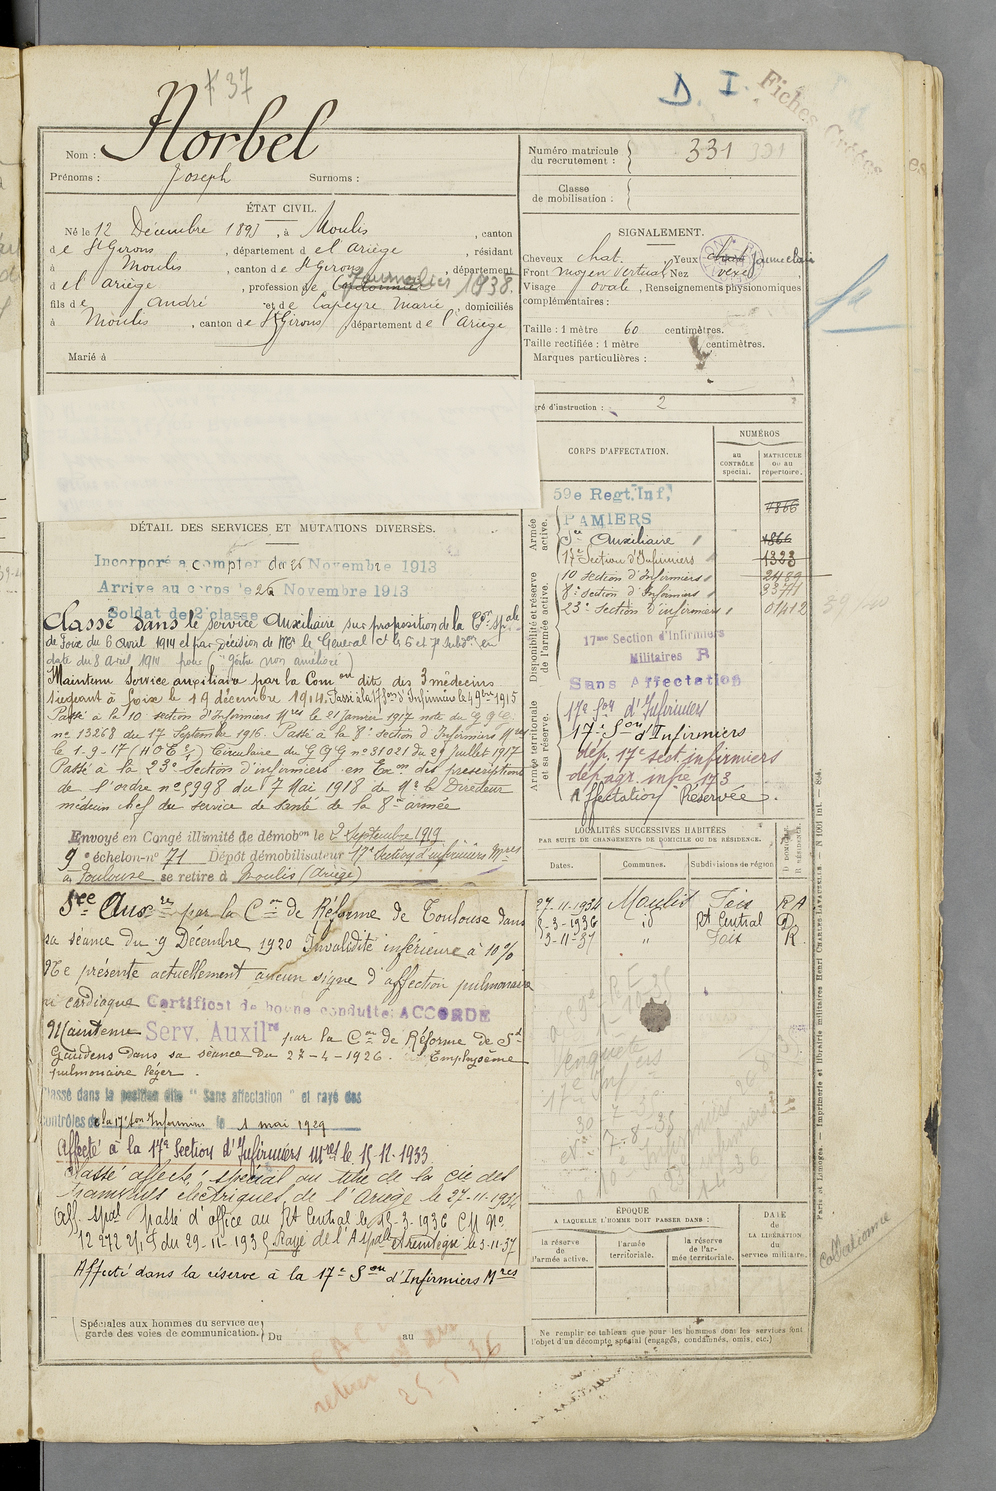 F 37
D. I.
Fiches Créées
Nom : Norbel
Prénoms : Joseph Surnoms :
Numéro matricule du recrutement : 331 331
Classe de mobilisation :
ÉTAT CIVIL.
Né le 12 Décembre 1893, à Moulis, canton
de St Girons, département de l Ariège, résidant
à Moulis, canton de St Girons, département
de l Ariège, profession de Cordonnier Journalier 1938
fils de André et de Capeyre Marie, domiciliés
à Moulis, canton de St Girons département de l'Ariège
Marié à
SIGNALEMENT.
Cheveux chat. Yeux chat. jaune clair
Front moyen vertical Nez vexe
Visage ovale, Renseignements physionomiques
complémentaires :
Taille : 1 mètre 60 centimètres.
Taille rectifiée : 1 mètre centimètres.
Marques particulières :
gré d'instruction : 2
CORPS D'AFFECTATION.
NUMÉROS
au CONTRÔLE spécial.
MATRICULE ou au répertoire.
Armée active.
Disponibilité et réserve de l'armée active.
Armée territoriale et sa réserve.
59e Regt. Inf.
PAMIERS 1866
Sce Auxiliaire 1866
17e Section d'Infirmiers 1323
10 section d'infirmiers 21489
8e Section d'infirmiers 33771
23e Section d'infirmiers 01412
17me Section d'Infirmiers
Militaires R
Sans Affectation
17e Son d'Infirmiers
17e Son d'Infirmiers
dép. 17e sect infirmiers
dép. rgr. infre 173
Affectation Réservée.
DÉTAIL DES SERVICES ET MUTATIONS DIVERSES.
Incorporé à compter du 26 Novembre 1913
Arrivé au corps le 26 Novembre 1913
Soldat de 2e classe
Classé dans le service Auxiliaire sur proposition de la Con spale
de Foix du 6 avril 1914 et par décision de Mr le Général Ct les 6 et 7e Subdon en
date du 8 avril 1914 pour ("goitre non amélioré")
Maintenu Service auxiliaire par la Comon dite des 3 médecins
siégeant à Foix le 19 décembre 1914. Passé à la 17 Son d'Infirmiers le 4 9bre 1915
Passé à la 10e section d'Infirmiers Mres le 21 Janvier 1917 note du G.Q.G.
no 13268 du 17 Septembre 1916. Passé à la 8e section d'Infirmiers Mres
le 1-9-17 (HOE) Circulaire du G Q G no 31021 du 29 Juillet 1917
Passé à la 23e Section d'infirmiers en Exon des prescriptions
de l'ordre no 5998 du 7 Mai 1918 de Mr le Directeur
médecin chef du service de santé de la 8e armée
Envoyé en Congé illimité de démobon le 2 Septembre 1919
9e échelon no 71 Dépôt démobilisateur 17e Section d'infirmiers Mres
à Toulouse se retire à Moulis (Ariège)
Sce Auxre par la Con de Réforme de Toulouse dans
sa séance du 9 Décembre 1920 Invalidité inférieure à 10 %
Ne présente actuellement aucun signe d'affection pulmonaire
ni cardiaque Certificat de bonne conduite ACCORDÉ
Maintenu Serv. Auxilre par la Con de Réforme de St
Gaudens dans sa séance du 27-4-1926. Emphysème
pulmonaire léger.
Classé dans la position dite "Sans affectation" et rayé des
contrôles de la 17e Son Infirmiers le 1 mai 1929
Affecté à la 17e Section d'Infirmiers Mres le 15.12.1933
Classé affecté spécial au titre de la cie des
Tramways électriques de l'Ariège le 27-11-1934
Aff. spal passé d'office au Rt Central le 15-3-1936 CM No
12 272 2/1 du 29-11-1935 Rayé de l'A spal et réintégré le 3-11-37
Affecté dans la réserve à la 17e Son d'Infirmiers Mres
LOCALITÉS SUCCESSIVES HABITÉES
PAR SUITE DE CHANGEMENTS DE DOMICILE OU DE RÉSIDENCE.
Dates. Communes. Subdivisions de région D. DOMICILE R. RÉSIDENCE.
27-11-1934 Moulis Foix RA
5-3-1936 id Rt Central D
3-11-37 " Foix R.
ÉPOQUE
A LAQUELLE L'HOMME DOIT PASSER DANS :
la réserve de l'armée active.
l'armée territoriale.
la réserve de l'armée territoriale.
DATE de LA LIBÉRATION du service militaire.
Spéciales aux hommes du service de garde des voies de communication. Du au
Ne remplir ce tableau que pour les hommes dont les services font
l'objet d'un décompte spécial (engagés, condamnés, omis, etc.)
Paris et Limoges. — Imprimerie et librairie militaires Henri CHARLES-LAVAUZELLE. — N 1001 int. — 864.
Collationné